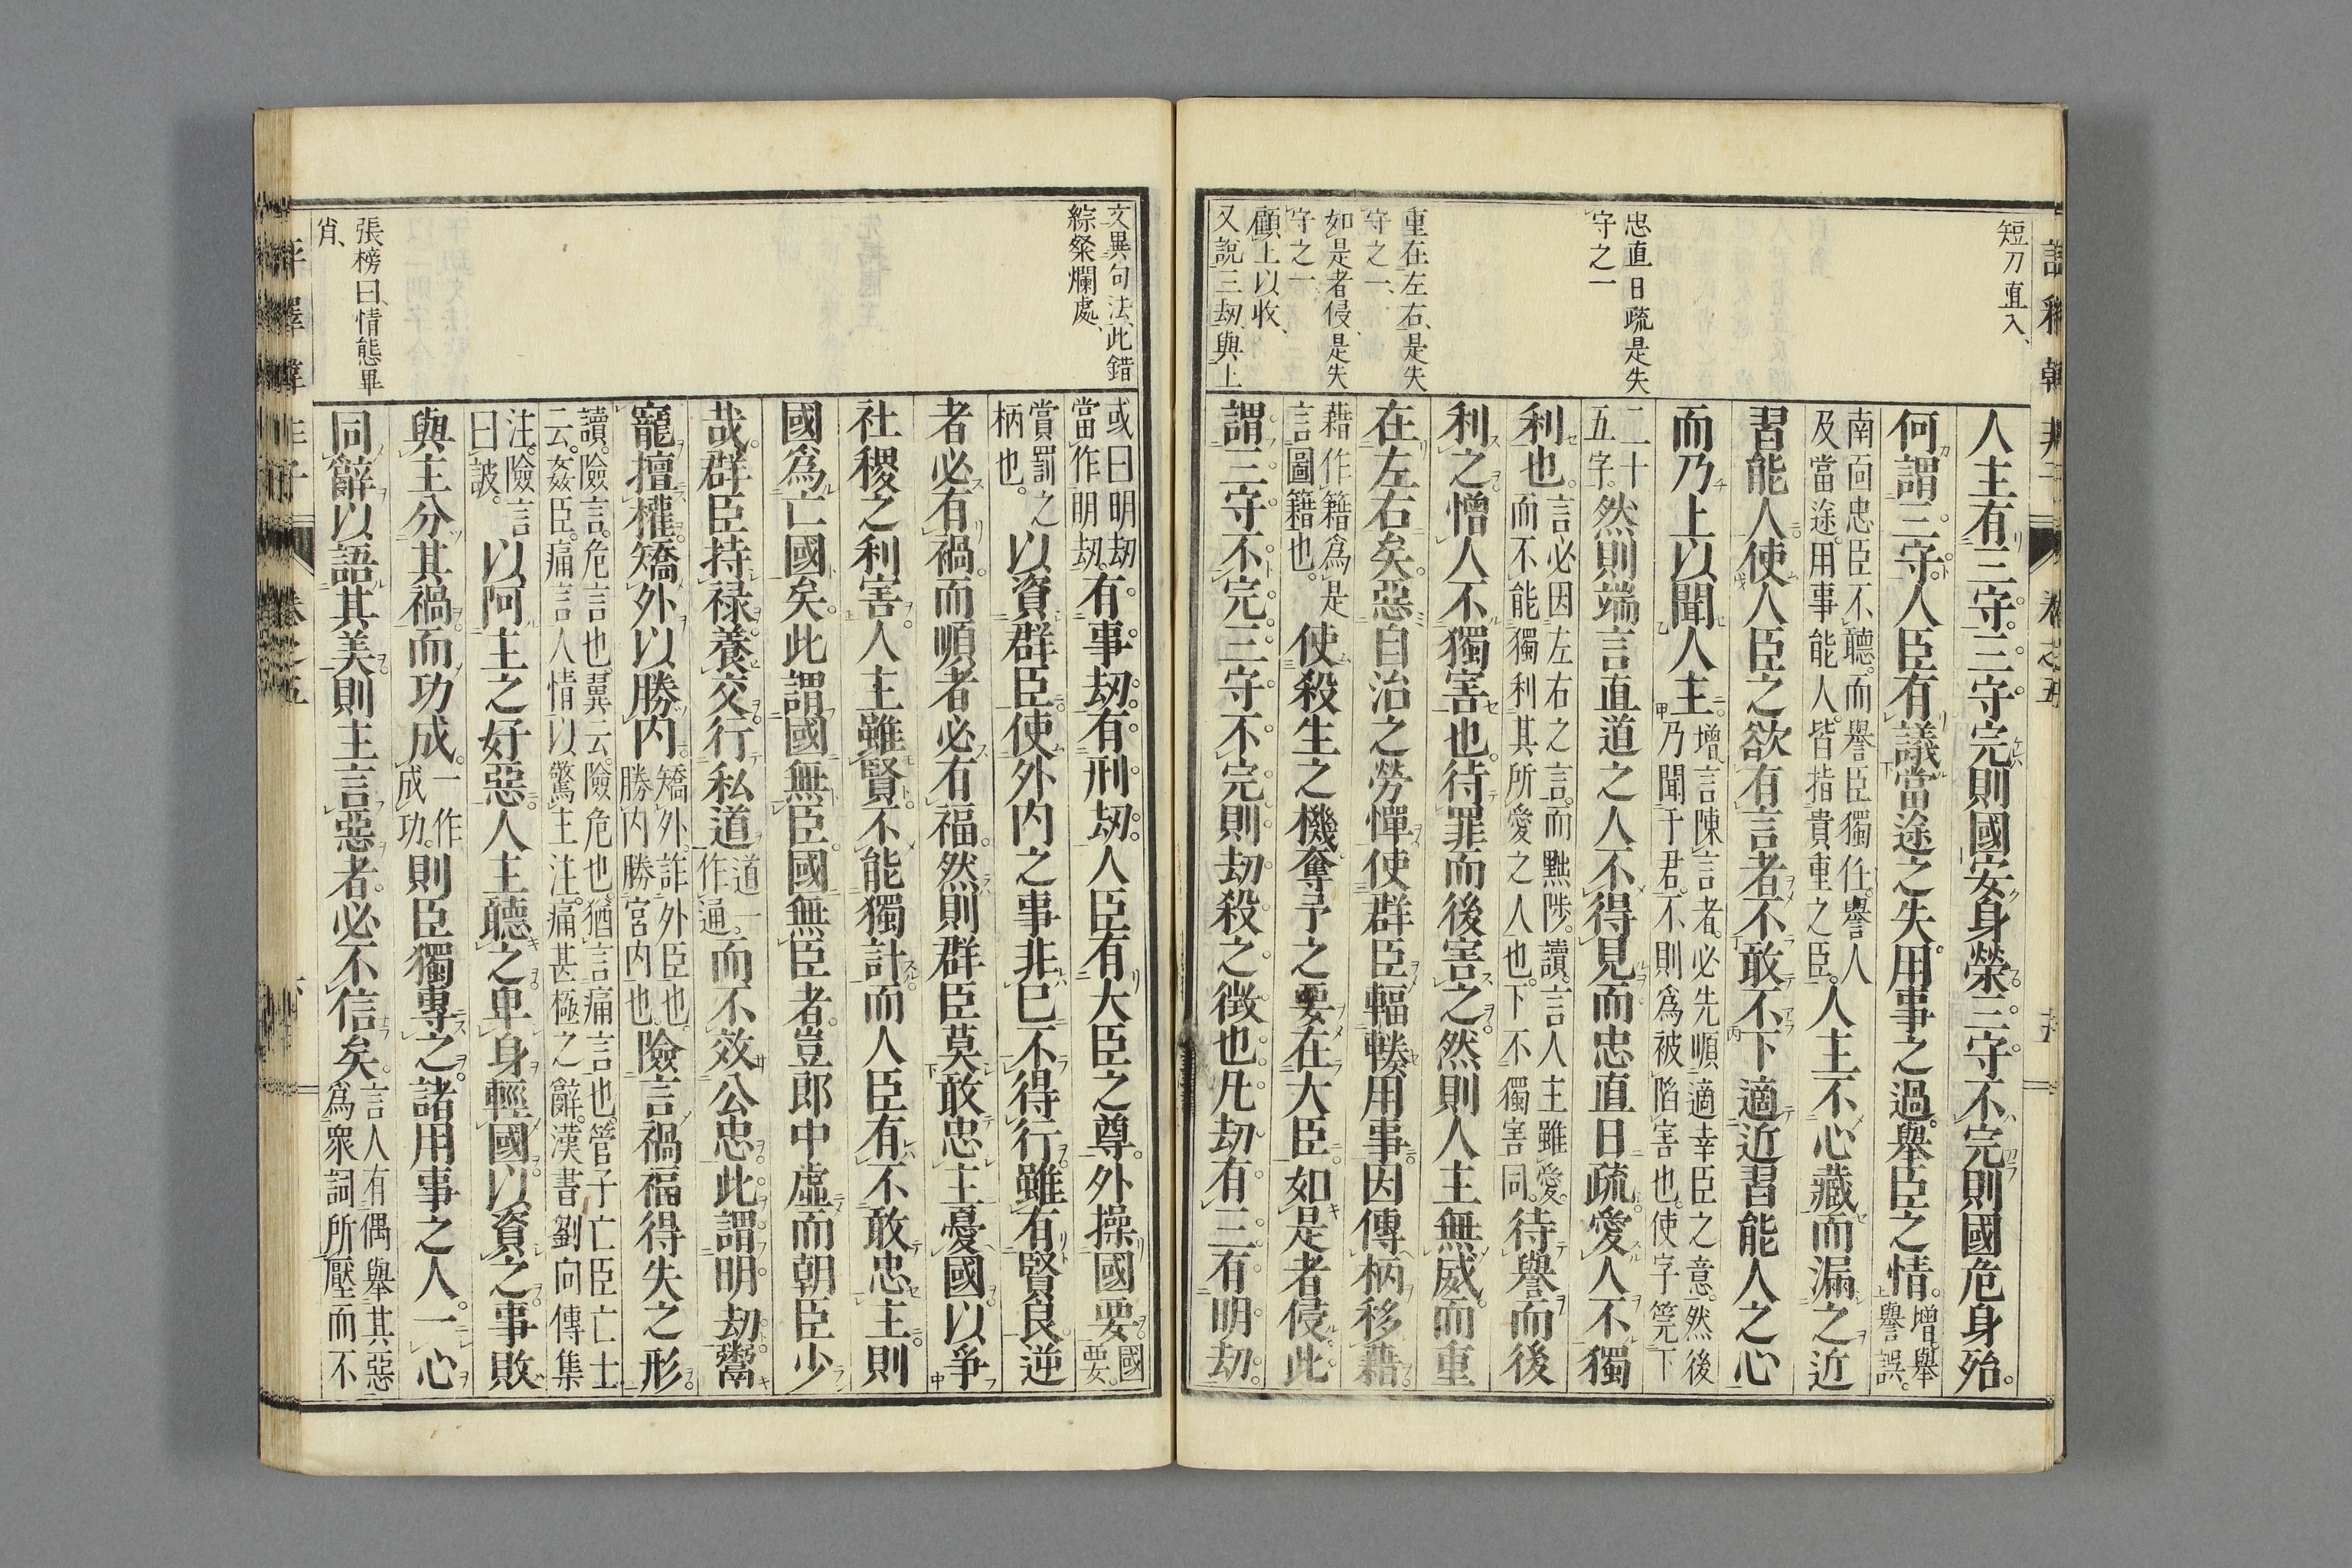 短刀直入、
忠直日疏是失
守之一
重在左右、是失
守之一、
如是者侵、是失
守之一、
顧上以收、
又說三刼、與上
人主有三守。三守完則國安身榮。三守不完則國危身殆。
何謂三守。人臣有議當途之失。用事之過。舉臣之情。增。舉譽誤。
南面忠臣不聽。而譽臣獨任。譽人及當途。用事能人。皆指貴重之臣。人主不心藏而漏之近
習能人。使人臣之欲有言者。不敢不下適近習能人之心
而乃上以聞人主。增。言陳言者。必先順適幸臣之意。然後乃聞于君。不則爲被陷害也。使字筦下
二十五字。然則端言直道之人。不得見而忠直日疏。愛人不獨
利也。言必因左右之言。而黜陟。讀。言人主雖愛。而不能獨利其所愛之人也。下不獨害同。待譽而後
利之。憎人不獨害也。待罪而後害之。然則人主無威而重
在左右矣。惡自治之勞憚。使群臣輻輳用事。因傳柄移藉。
藉作籍爲是言圖籍也。使殺生之機。奪予之要。在大臣。如是者侵。此
謂三守不完。三守不完。則刼殺之徵也。凡刼有三。有明刼。
文異句法、此錯
綜粲爛處、
張榜曰、情態畢
肖、
或曰明刼當作明刼。有事刼。有刑刼。人臣有大臣之尊。外操國要。國要。
賞罰之柄也。以資群臣。使外內之事非己不得行。雖有賢良。逆
者必有禍。而順者必有福。然則群臣莫敢忠主憂國。以爭
社稷之利害。人主雖賢。不能獨計。而人臣有不敢忠主。則
國爲亡國矣。此謂國無臣。國無臣者。豈郎中虛而朝臣少
哉。群臣持祿養交。行私道道一作通。而不效公忠。此謂明刼。鬻
寵擅權。矯外以勝內。矯外。詐外臣也。勝內勝宮內也。險言禍福得失之形。
讀。險言。危言也。翼云。險危也。猶言痛言也。管子亡臣亡士云。姦臣。痛言人情以驚主注。痛甚極之辭。漢書劉向傳集
注。險言曰詖。以阿主之好惡。人主聽之。卑身輕國以資之。事敗
與主分其禍。而功成。一作成功。則臣獨專之。諸用事之人。一心
同辭以語其美。則主言惡者。必不信矣。言人有偶舉其惡爲衆詞所壓而不
評釋韓非子
卷之五